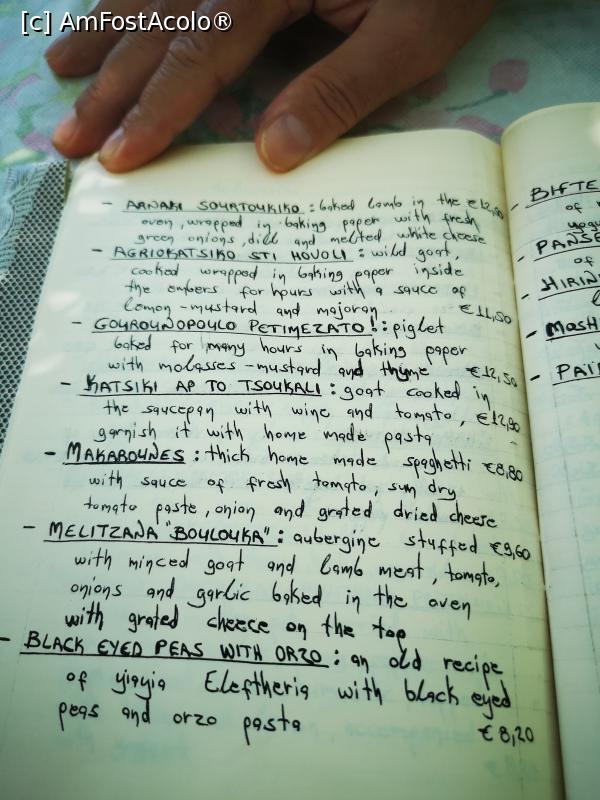 [c] AmFostAcolo®
- ARNAKI SOURTOUKIKO : baked lamb in the
oven, wrapped in baking paper with fresh
green onions, dill and melted white cheese
- AGRIOKATSIKO STI HOVOLI : wild goat,
cooked wrapped in baking paper inside
the embers for hours with a sauce of
lemon-mustard and majoran €11,50
- GOUROUNOPOULO PETIMEZATO! : piglet
baked for many hours in baking paper
with molasses-mustard and thyme €12,50
- KATSIKI AP TO TSOUKALI : goat cooked in
the saucepan with wine and tomato, €12,90
garnish it with home made pasta
- MAKAROUNES : thick home made spaghetti €8,80
with sauce of fresh tomato, sun dry
tomato paste, onion and grated dried cheese
- MELITZANA "BOULOUKA" : aubergine stuffed €9,60
with minced goat and lamb meat, tomato,
onions and garlic baked in the oven
with grated cheece on the top
- BLACK EYED PEAS WITH ORZO : an old recipe
of yiayia Eleftheria with black eyed
peas and orzo pasta €8,20
- BIFTE
of
- PANSE
of
- HIRIN
- MOSH